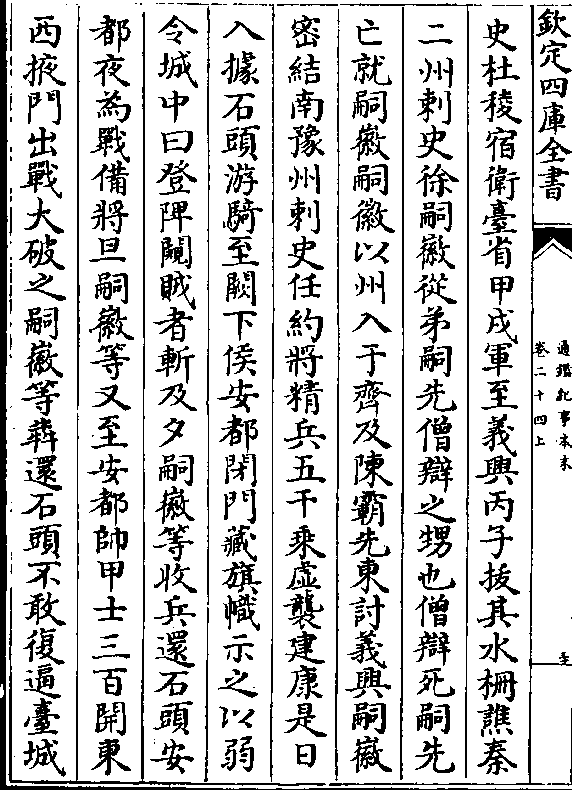 欽定四庫全書
通鑑紀事本末
卷二十四上
史杜稜宿衛臺省甲戌軍至義興丙子拔其水柵譙秦
二州刺史徐嗣徽從弟嗣先僧辯之甥也僧辯死嗣先
亡就嗣徽嗣徽以州入于齊及陳霸先東討義興嗣徽
密結南豫州刺史任約將精兵五千乘虛襲建康是日
入據石頭游騎至闕下侯安都閉門藏旗幟示之以弱
令城中曰登陴闚賊者斬及夕嗣徽等收兵還石頭安
都夜為戰備將旦嗣徽等又至安都帥甲士三百開東
西掖門出戰大破之嗣徽等犇還石頭不敢復逼臺城